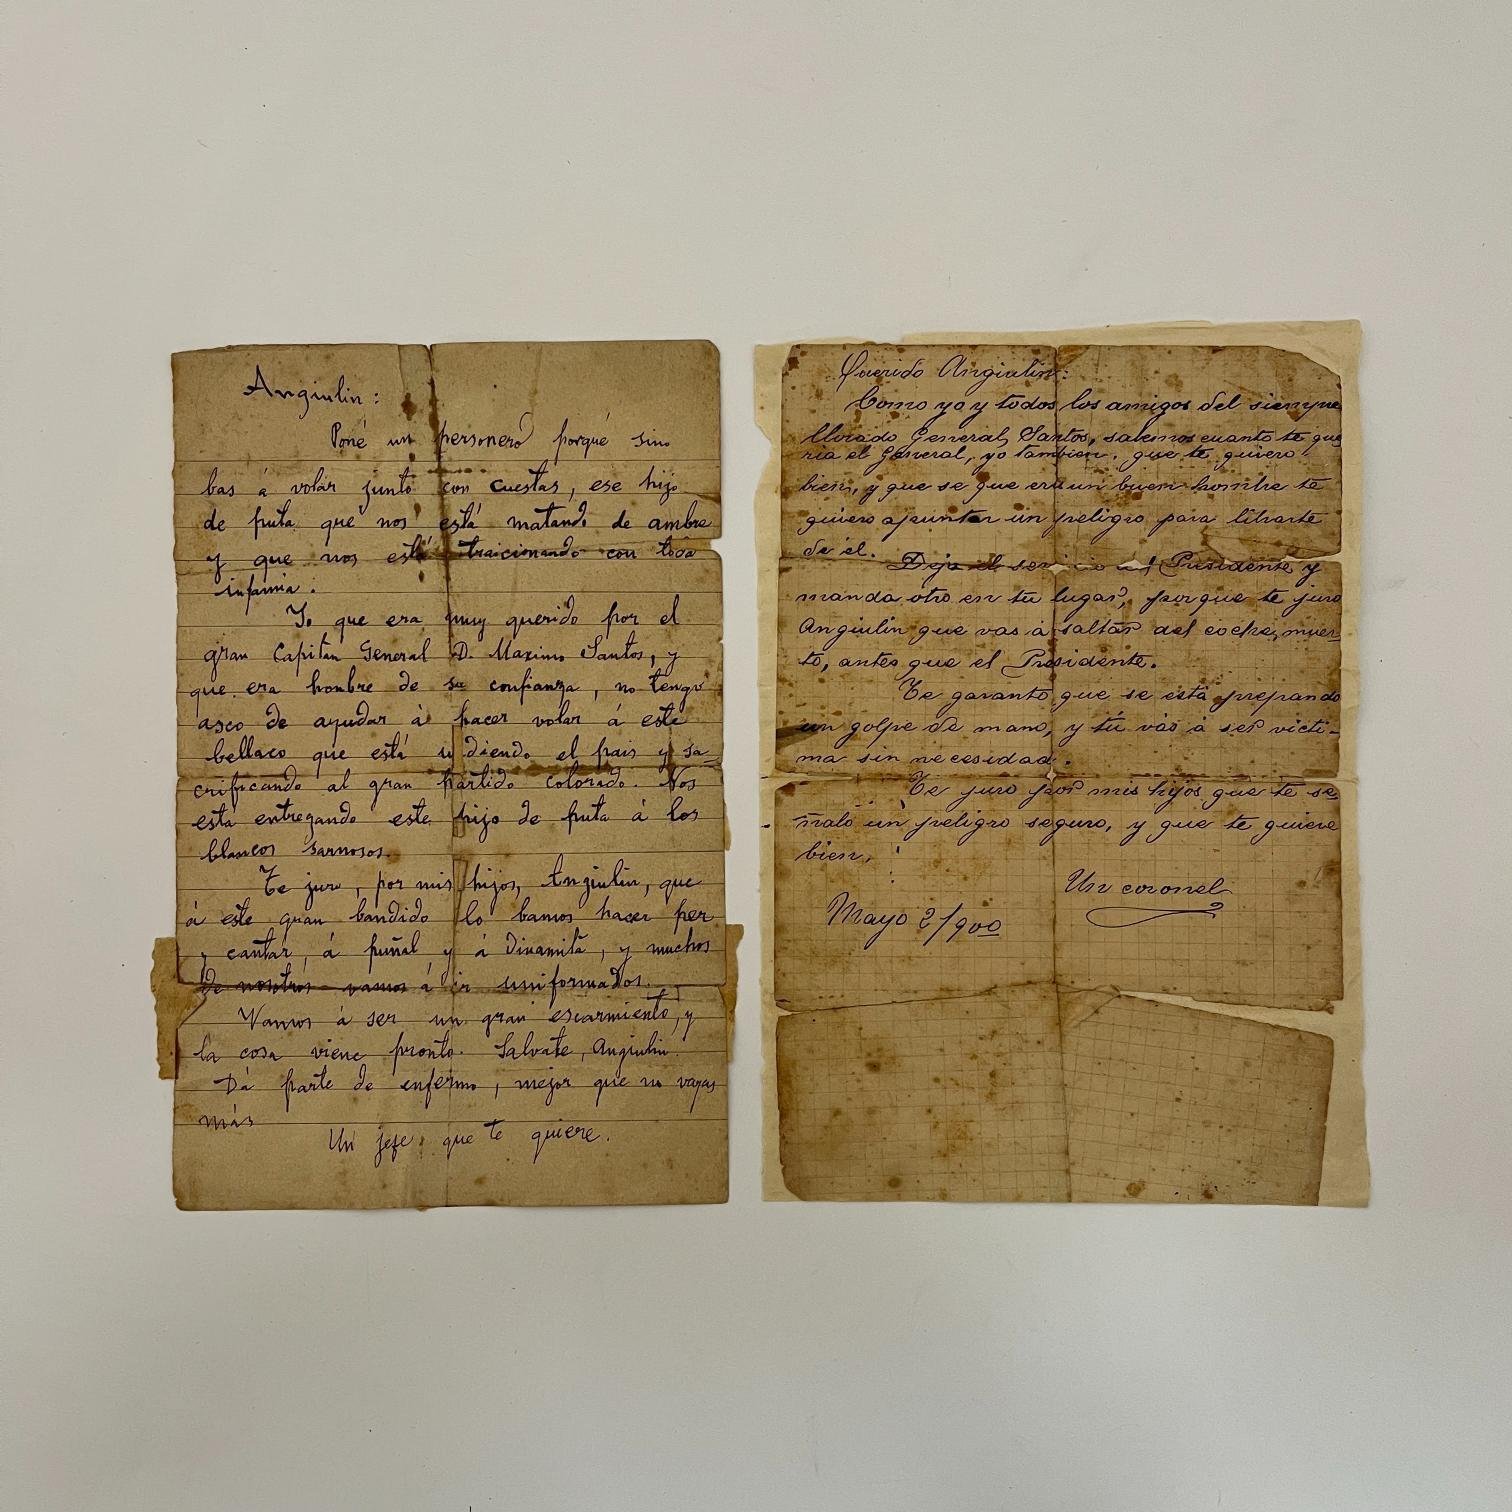 Angiulin:
Poné un personero porque sino
bas á volár junto con cuestas, ese hijo
de puta que nos está matando de ambre
y que nos está traicionando con toda
infamia.
Yo que era muy querido por el
gran Capitan General D. Maximo Santos, y
que era honbre de su confianza, no tengo
asco de ayudar á hacer volar á este
bellaco que está undiendo el pais y sa-
crificando al gran partido colorado. Nos
está entregando este hijo de puta á los
blancos sarnosos.
Te juro, por mis hijos, Angiulin, que
á este gran bandido lo bamos hacer per
y cantar, á puñal y á dinamita, y muchos
de nosotros vamos á ir uniformados.
Vamos á ser un gran escarmiento, y
la cosa viene pronto. Salvate, Angiulin.
Dá parte de enfermo, mejor que no vayas
más
Un jefe que te quiere.
Querido Angiulin:
Como yo y todos los amigos del siempre
llorado General Santos, sabemos cuanto te que
ria el General, yo tambien. que te quiero
bien, y que se que era un buen hombre te
quiero apuntar un peligro para librarte
de él.
Deja el servicio del Presidente y
manda otro en tu lugar, porque te juro
Angiulin que vas á saltar del coche, muer
to, antes que el Presidente.
Te garanto que se está prepando
un golpe de mano, y tú vás á ser victi-
ma sin necesidad.
Te juro por mis hijos que te se-
ñalo un peligro seguro, y que te quiere
bien,
Un coronel
Mayo 2/900